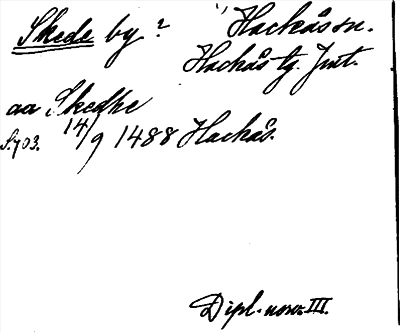 Skede by? " Hackås sn.
Hackås tg. Jmt.
aa Skedhe
S. 703. 14/9 1488 Hackås.
Dipl. norv. III.